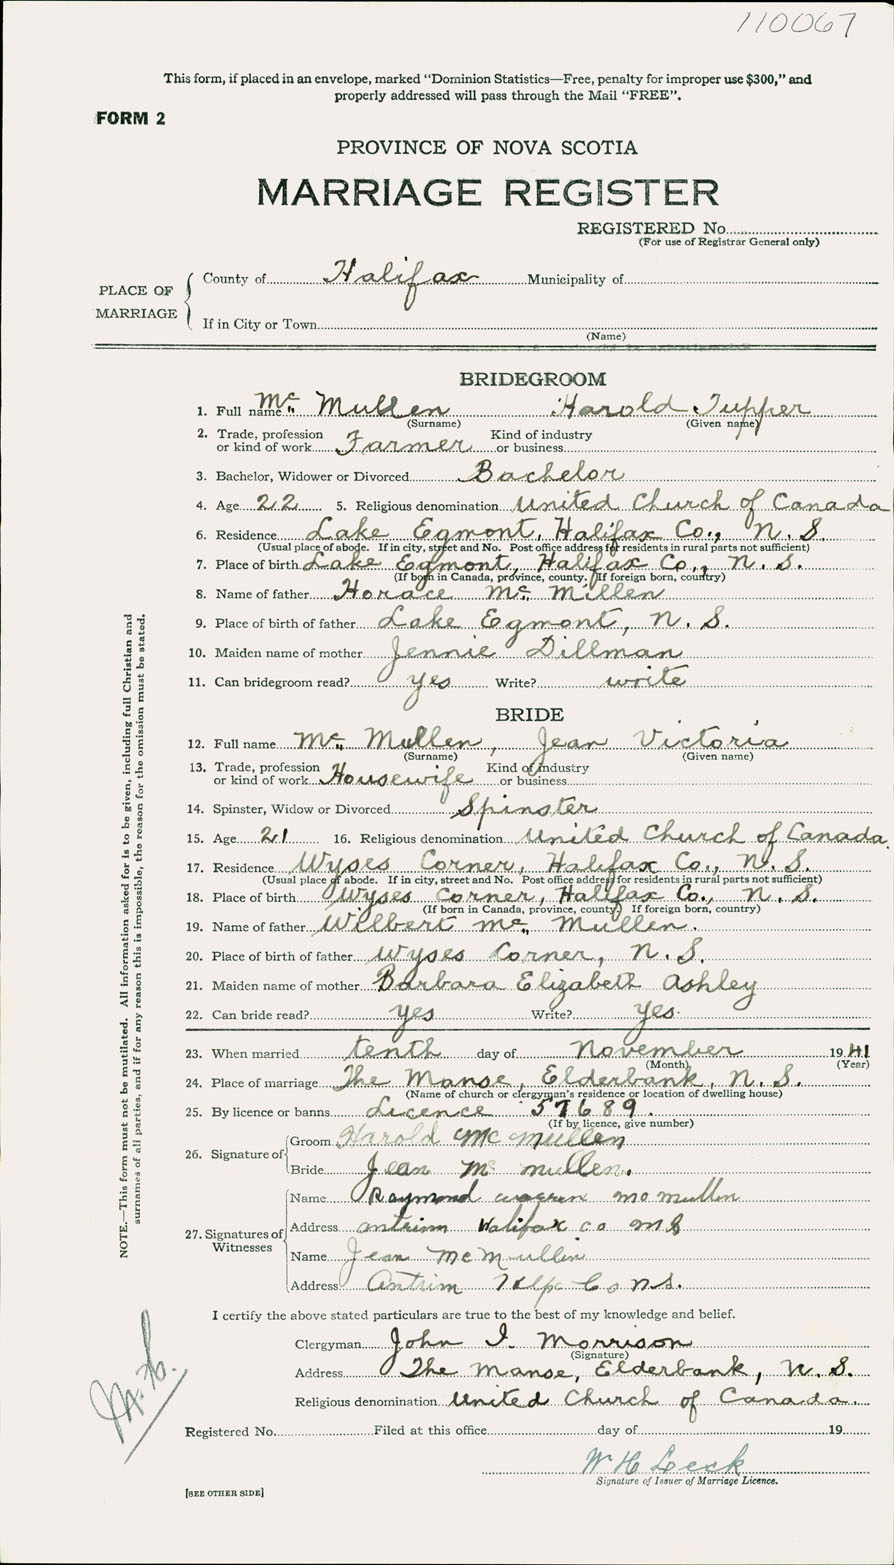 110067
This form, if placed in an envelope, marked "Dominion Statistics—Free, penalty for improper use $300," and
properly addressed will pass through the Mail "FREE".
FORM 2
PROVINCE OF NOVA SCOTIA
MARRIAGE REGISTER
REGISTERED No.
(For use of Registrar General only)
PLACE OF MARRIAGE
County of Halifax Municipality of
If in City or Town
(Name)
BRIDEGROOM
1. Full name Mc Mullen Harold Tupper
(Surname) (Given name)
2. Trade, profession or kind of work Farmer Kind of industry or business
3. Bachelor, Widower or Divorced Bachelor
4. Age 22 5. Religious denomination United Church of Canada
6. Residence Lake Egmont, Halifax Co., N.S.
(Usual place of abode. If in city, street and No. Post office address for residents in rural parts not sufficient)
7. Place of birth Lake Egmont, Halifax Co., N.S.
(If born in Canada, province, county. If foreign born, country)
8. Name of father Horace Mc Millen
9. Place of birth of father Lake Egmont, N.S.
10. Maiden name of mother Jennie Dillman
11. Can bridegroom read? yes Write? write
BRIDE
12. Full name Mc Mullen, Jean Victoria
(Surname) (Given name)
13. Trade, profession or kind of work Housewife Kind of industry or business
14. Spinster, Widow or Divorced Spinster
15. Age 21 16. Religious denomination United Church of Canada.
17. Residence Wyses Corner, Halifax Co., N.S.
(Usual place of abode. If in city, street and No. Post office address for residents in rural parts not sufficient)
18. Place of birth Wyses Corner, Halifax Co., N.S.
(If born in Canada, province, county) If foreign born, country)
19. Name of father Wilbert Mc Mullen.
20. Place of birth of father Wyses Corner, N.S.
21. Maiden name of mother Barbara Elizabeth Ashley
22. Can bride read? yes Write? Yes.
23. When married tenth day of November 1941
(Month) (Year)
24. Place of marriage The Manse, Elderbank, N.S.
(Name of church or clergyman's residence or location of dwelling house)
25. By licence or banns Licence 57689.
(If by licence, give number)
26. Signature of
Groom Harold Mc Mullen
Bride Jean Mc mullen.
27. Signatures of Witnesses
Name Raymond mc mullen
Address antrim Halifax co
Name Jean McMullin
Address Antrim Hlfx Co N.S.
I certify the above stated particulars are true to the best of my knowledge and belief.
Clergyman John I. Morrison
(Signature)
Address The Manse, Elderbank, N.S.
Religious denomination United Church of Canada.
Registered No. Filed at this office day of 19
W H Leck
Signature of Issuer of Marriage Licence.
[SEE OTHER SIDE]
NOTE.—This form must not be mutilated. All information asked for is to be given, including full Christian and
surnames of all parties, and if for any reason this is impossible, the reason for the omission must be stated.